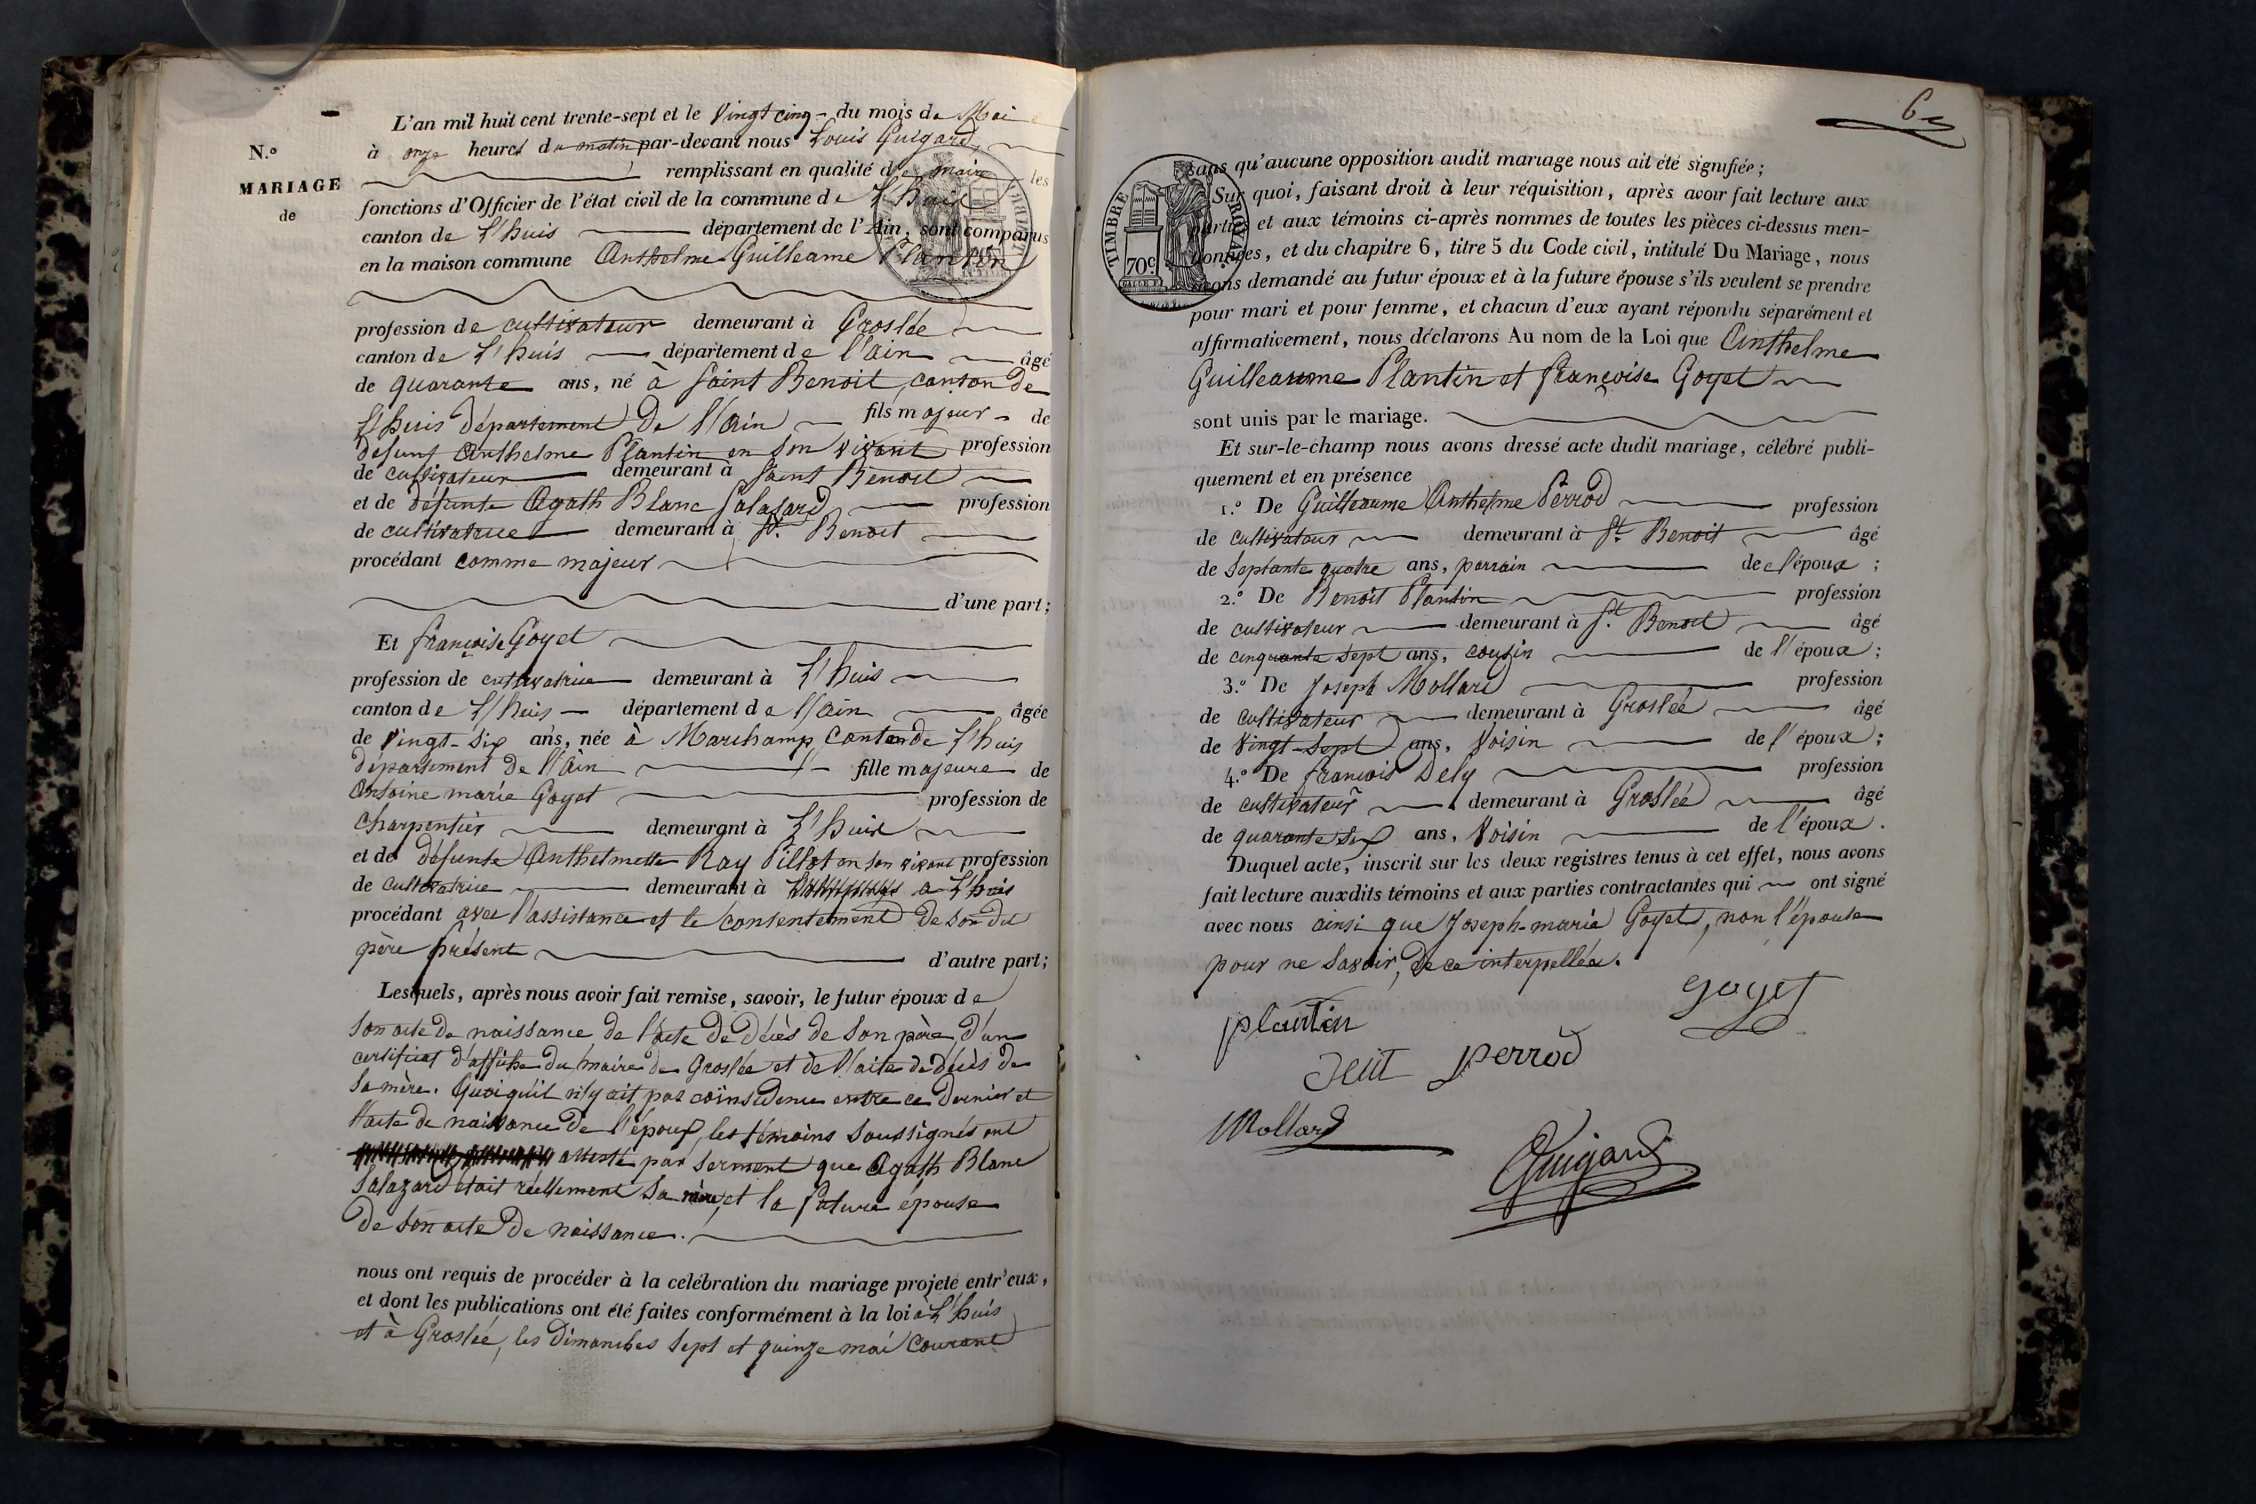 N.º
MARIAGE
de
L'an mil huit cent trente-sept et le Vingt cinq du mois de Mai
à onze heures du matin par-devant nous Louis Guigard
remplissant en qualité de maire les
fonctions d'Officier de l'état civil de la commune de L'huis
canton de L'huis département de l'Ain, sont comparus
en la maison commune Anthelme Guilleaume Plantin
profession de cultivateur demeurant à Groslée
canton de L'huis département de l'ain âgé
de quarante ans, né à Saint Benoit, canton de
L'huis département de l'Ain fils majeur de
défunt Anthelme Plantin en son vivant profession
de cultivateur demeurant à Saint Benoit
et de défunte Agath Blanc Salazard profession
de cultivatrice demeurant à St. Benoit
procédant comme majeur
d'une part;
Et françoise Goyet
profession de cultivatrice demeurant à L'huis
canton de L'huis département de l'Ain âgée
de Vingt-six ans, née à Marchamp, canton de L'huis
département de l'Ain fille majeure de
Antoine marie Goyet profession de
charpentier demeurant à L'huis
et de défunte Anthelmette Ray Pillot en son vivant profession
de cultivatrice demeurant à à L'huis
procédant avec l'assistance et le consentement de son dit
père présent d'autre part;
Lesquels, après nous avoir fait remise, savoir, le futur époux de
son acte de naissance de l'acte de décès de son père d'un
certificat d'affiche du maire de Groslée et de l'acte de décès de
sa mère. Quoiqu'il n'y ait pas coïnsidence entre ce dernier et
l'acte de naissance de l'époux, les témoins soussignés ont
attesté par serment que Agath Blanc
Salazard était réellement sa mère, et la future épouse
de son acte de naissance.
nous ont requis de procéder à la celébration du mariage projeté entr'eux,
et dont les publications ont été faites conformément à la loi à L'huis
et à Groslée, les dimanches sept et quinze mai courant
TIMBRE ROYAL
70c
sans qu'aucune opposition audit mariage nous ait été signifiée;
Sur quoi, faisant droit à leur réquisition, après avoir fait lecture aux
parties et aux témoins ci-après nommes de toutes les pièces ci-dessus men-
tionnées, et du chapitre 6, titre 5 du Code civil, intitulé Du Mariage, nous
avons demandé au futur époux et à la future épouse s'ils veulent se prendre
pour mari et pour femme, et chacun d'eux ayant répondu séparément et
affirmativement, nous déclarons Au nom de la Loi que Anthelme
Guilleaume Plantin et françoise Goyet
sont unis par le mariage.
Et sur-le-champ nous avons dressé acte dudit mariage, célébré publi-
quement et en présence
1.º De Guilleaume Anthelme Perrod profession
de cultivateur demeurant à St. Benoit âgé
de septante quatre ans, parrain de l'époux;
2.º De Benoit Plantin profession
de cultivateur demeurant à St. Benoit âgé
de cinquante sept ans, cousin de l'époux;
3.º De Joseph Mollard profession
de cultivateur demeurant à Groslée âgé
de vingt-sept ans, Voisin de l'époux;
4.º De françois Dely profession
de cultivateur demeurant à Groslée âgé
de quarante six ans, Voisin de l'époux.
Duquel acte, inscrit sur les deux registres tenus à cet effet, nous avons
fait lecture auxdits témoins et aux parties contractantes qui ont signé
avec nous ainsi que Joseph-marie Goyet, non l'épouse
pour ne savoir, de ce interpellée.
goyet
plantin
perrod
Mollard
Guigard